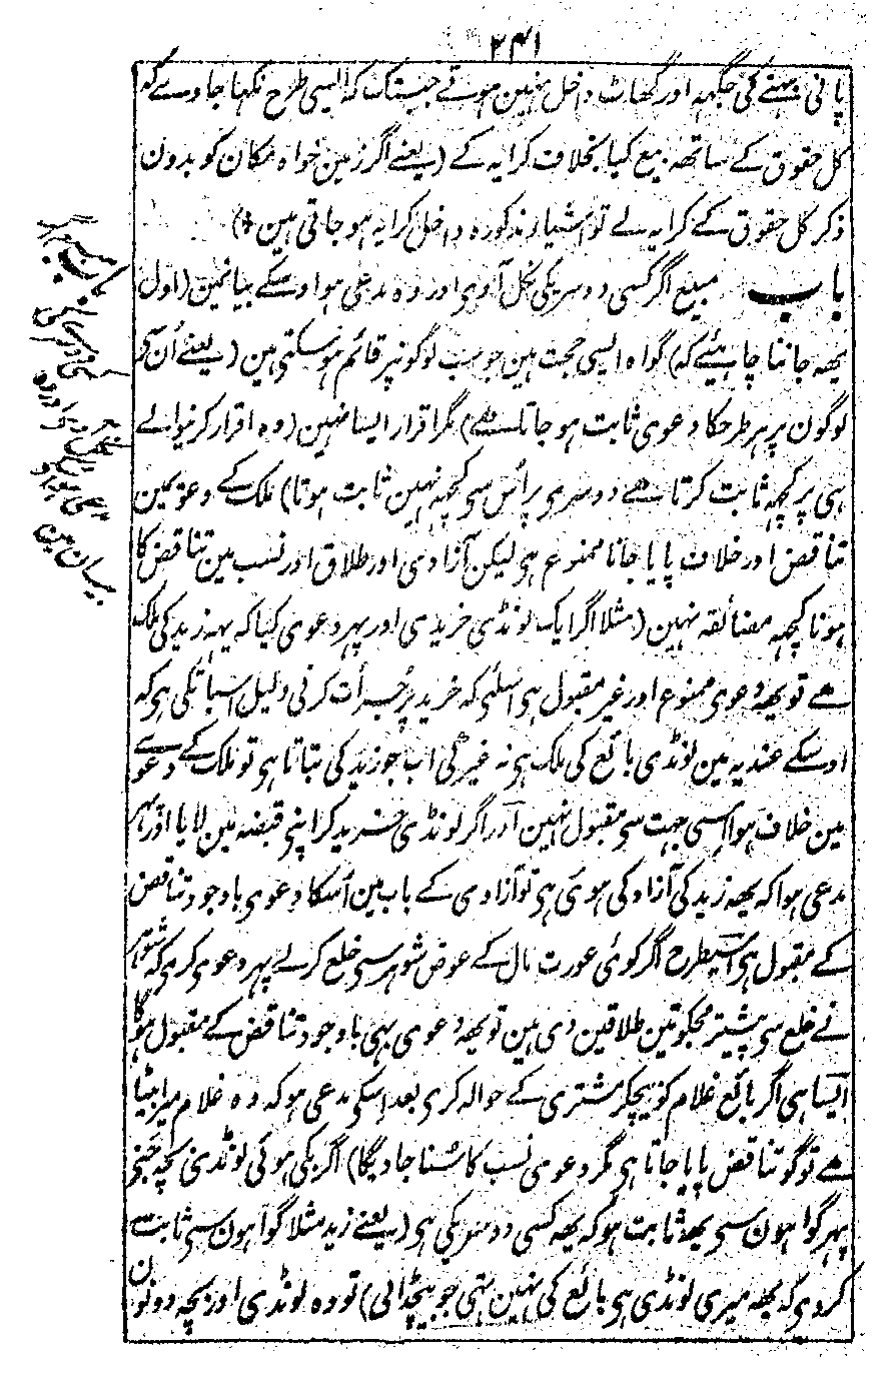 ۲۴۱
پانی بہنے کی جگہہ اور گھاٹ داخل نہین ہوتے جبتک کہ ایسی طرح نکہا جاوے کہ
کل حقوق کے ساتھہ بیع کیا بخلاف کرایہ کے (یعنے اگر زمین خواہ مکان کو بدون
ذکر کل حقوق کے کرایہ لے تو اشیاء مذکورہ داخل کرایہ ہو جاتی ہین +)
باب مبیع اگر کسی دوسریکی نکل آوی اور وہ مدعی ہو اوسکے بیانمین (اول
یھہ جاننا چاہیئے کہ) گواہ ایسی حجت ہین جو سب لوگونپر قائم ہو سکتی ہین (یعنے اُن سے
لوگون پر ہر طرحکا دعوی ثابت ہو جاتا ہے) مگر اقرار ایسا نہین (وہ اقرار کرنیوالے
ہی پر کچہہ ثابت کرتا ہے دوسری پر اُس سی کچہہ نہین ثابت ہوتا) ملک کے دعویمین
تناقض اور خلاف پایا جانا ممنوع ہی لیکن آزادی اور طلاق اور نسب مین تناقض کا
ہونا کچہہ مضائقہ نہین (مثلا اگر ایک لونڈی خریدی اور پہر دعوی کیا کہ یہہ زید کی ملک
ہے تو یھہ دعوی ممنوع اور غیر مقبول ہی اسلئی کہ خرید پر جُرأت کرنی دلیل اسباتکی ہی کہ
اوسکے عندیہ مین لونڈی بائع کی ملک ہی نہ غیر کی اب جو زید کی بتاتا ہی تو ملک کے دعوے
مین خلاف ہوا اسی جہت سی مقبول نہین اور اگر لونڈی خرید کر اپنی قبضہ مین لایا اور پہر
مدعی ہوا کہ یھہ زید کی آزاد کی ہوئی ہی تو آزادی کے باب مین اُسکا دعوی باوجود تناقض
کے مقبول ہی اسیطرح اگر کوئی عورت مال کے عوض شوہر سی خلع کرلے پہر دعوی کری کہ شوہر
نے خلع سی پیشتر مجکو تین طلاقین دی ہین تو یھہ دعوی بہی باوجود تناقض کے مقبول ہوگا
ایسا ہی اگر بائع غلام کو بیچکر مشتری کے حوالہ کری بعد اسکی مدعی ہو کہ وہ غلام میرا بیٹا
ہے تو گو تناقض پایا جاتا ہی مگر دعوی نسب کا سُنا جاویگا) اگر بکی ہوئی لونڈی بچہ جنے
پہر گواہون سی یھہ ثابت ہو کہ یھہ کسی دوسریکی ہی (یعنے زید مثلا گواہون سی ثابت
کردی کہ یھہ میری لونڈی ہی بائع کی نہین تہی جو بیچڈالی) تو وہ لونڈی اور بچہ دونون
بیان مین